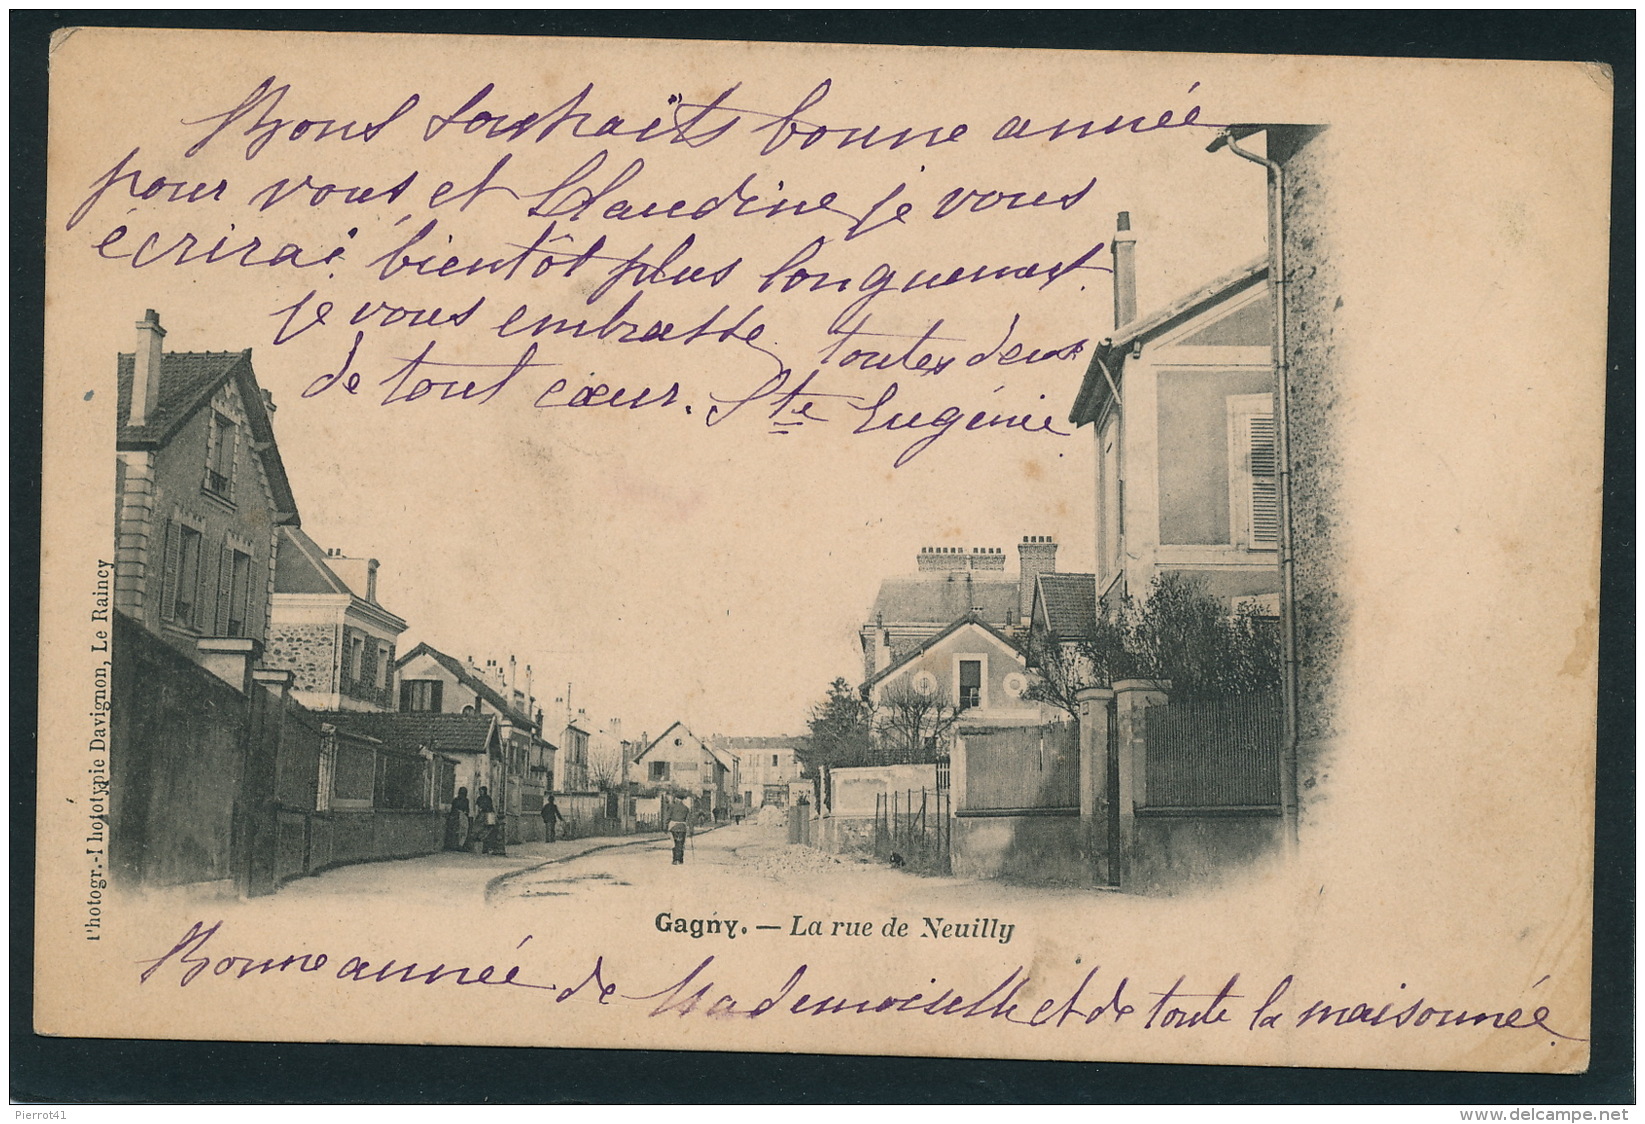 Bons souhaits bonne année
pour vous et Claudine je vous
écrirai bientôt plus longuement.
je vous embrasse toutes deux
de tout cœur. Ste Eugénie
Photogr.-Phototypie Davignon, Le Raincy
Gagny. — La rue de Neuilly
Bonne année de Mademoiselle et de toute la maisonnée.
Pierrot41
www.delcampe.net